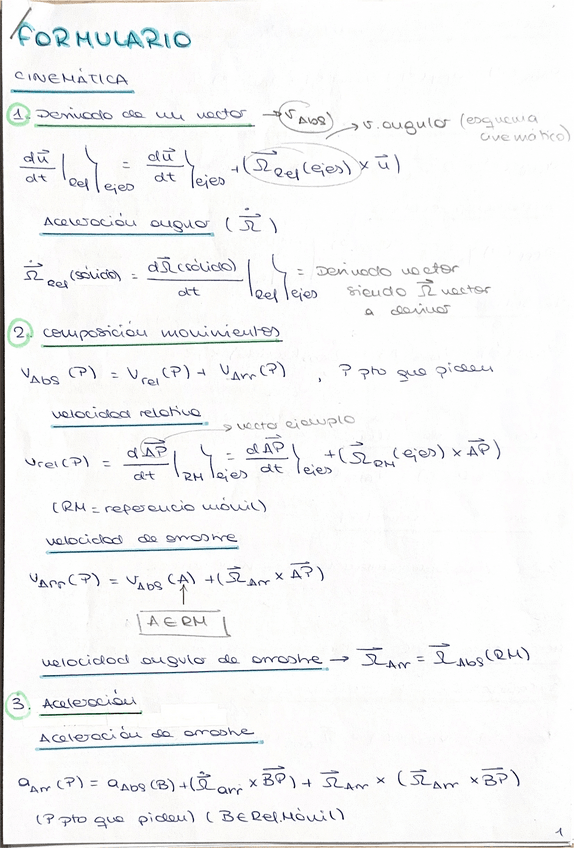 FORMULARIO
CINEMÁTICA
1. Derivada de un vector → (VAbs)
→ v. angular (esquema cinemático)
du⃗/dt |Ref }ejes = du⃗/dt }ejes + (Ω⃗Ref (ejes) × u⃗)
Aceleración angular (Ω⃗̇)
Ω⃗̇Ref (sólido) = dΩ⃗(sólido)/dt |Ref }ejes = Derivada vector
siendo Ω⃗ vector
a derivar
2. Composición movimientos
VAbs (P) = Vrel (P) + VArr (P) , P pto que piden
velocidad relativa
→ vector ejemplo
Vrel (P) = dAP⃗/dt |RM }ejes = dAP⃗/dt }ejes + (Ω⃗RM (ejes) × AP⃗)
(RM = referencia móvil)
velocidad de arrastre
VArr (P) = VAbs (A) + (Ω⃗Arr × AP⃗)
A ∈ RM
velocidad angular de arrastre → Ω⃗Arr = Ω⃗Abs (RM)
3. Aceleración
Aceleración de arrastre
aArr (P) = aAbs (B) + (Ω⃗̇arr × BP⃗) + Ω⃗Arr × (Ω⃗Arr × BP⃗)
(P pto que piden) (B ∈ Ref. Móvil)
1